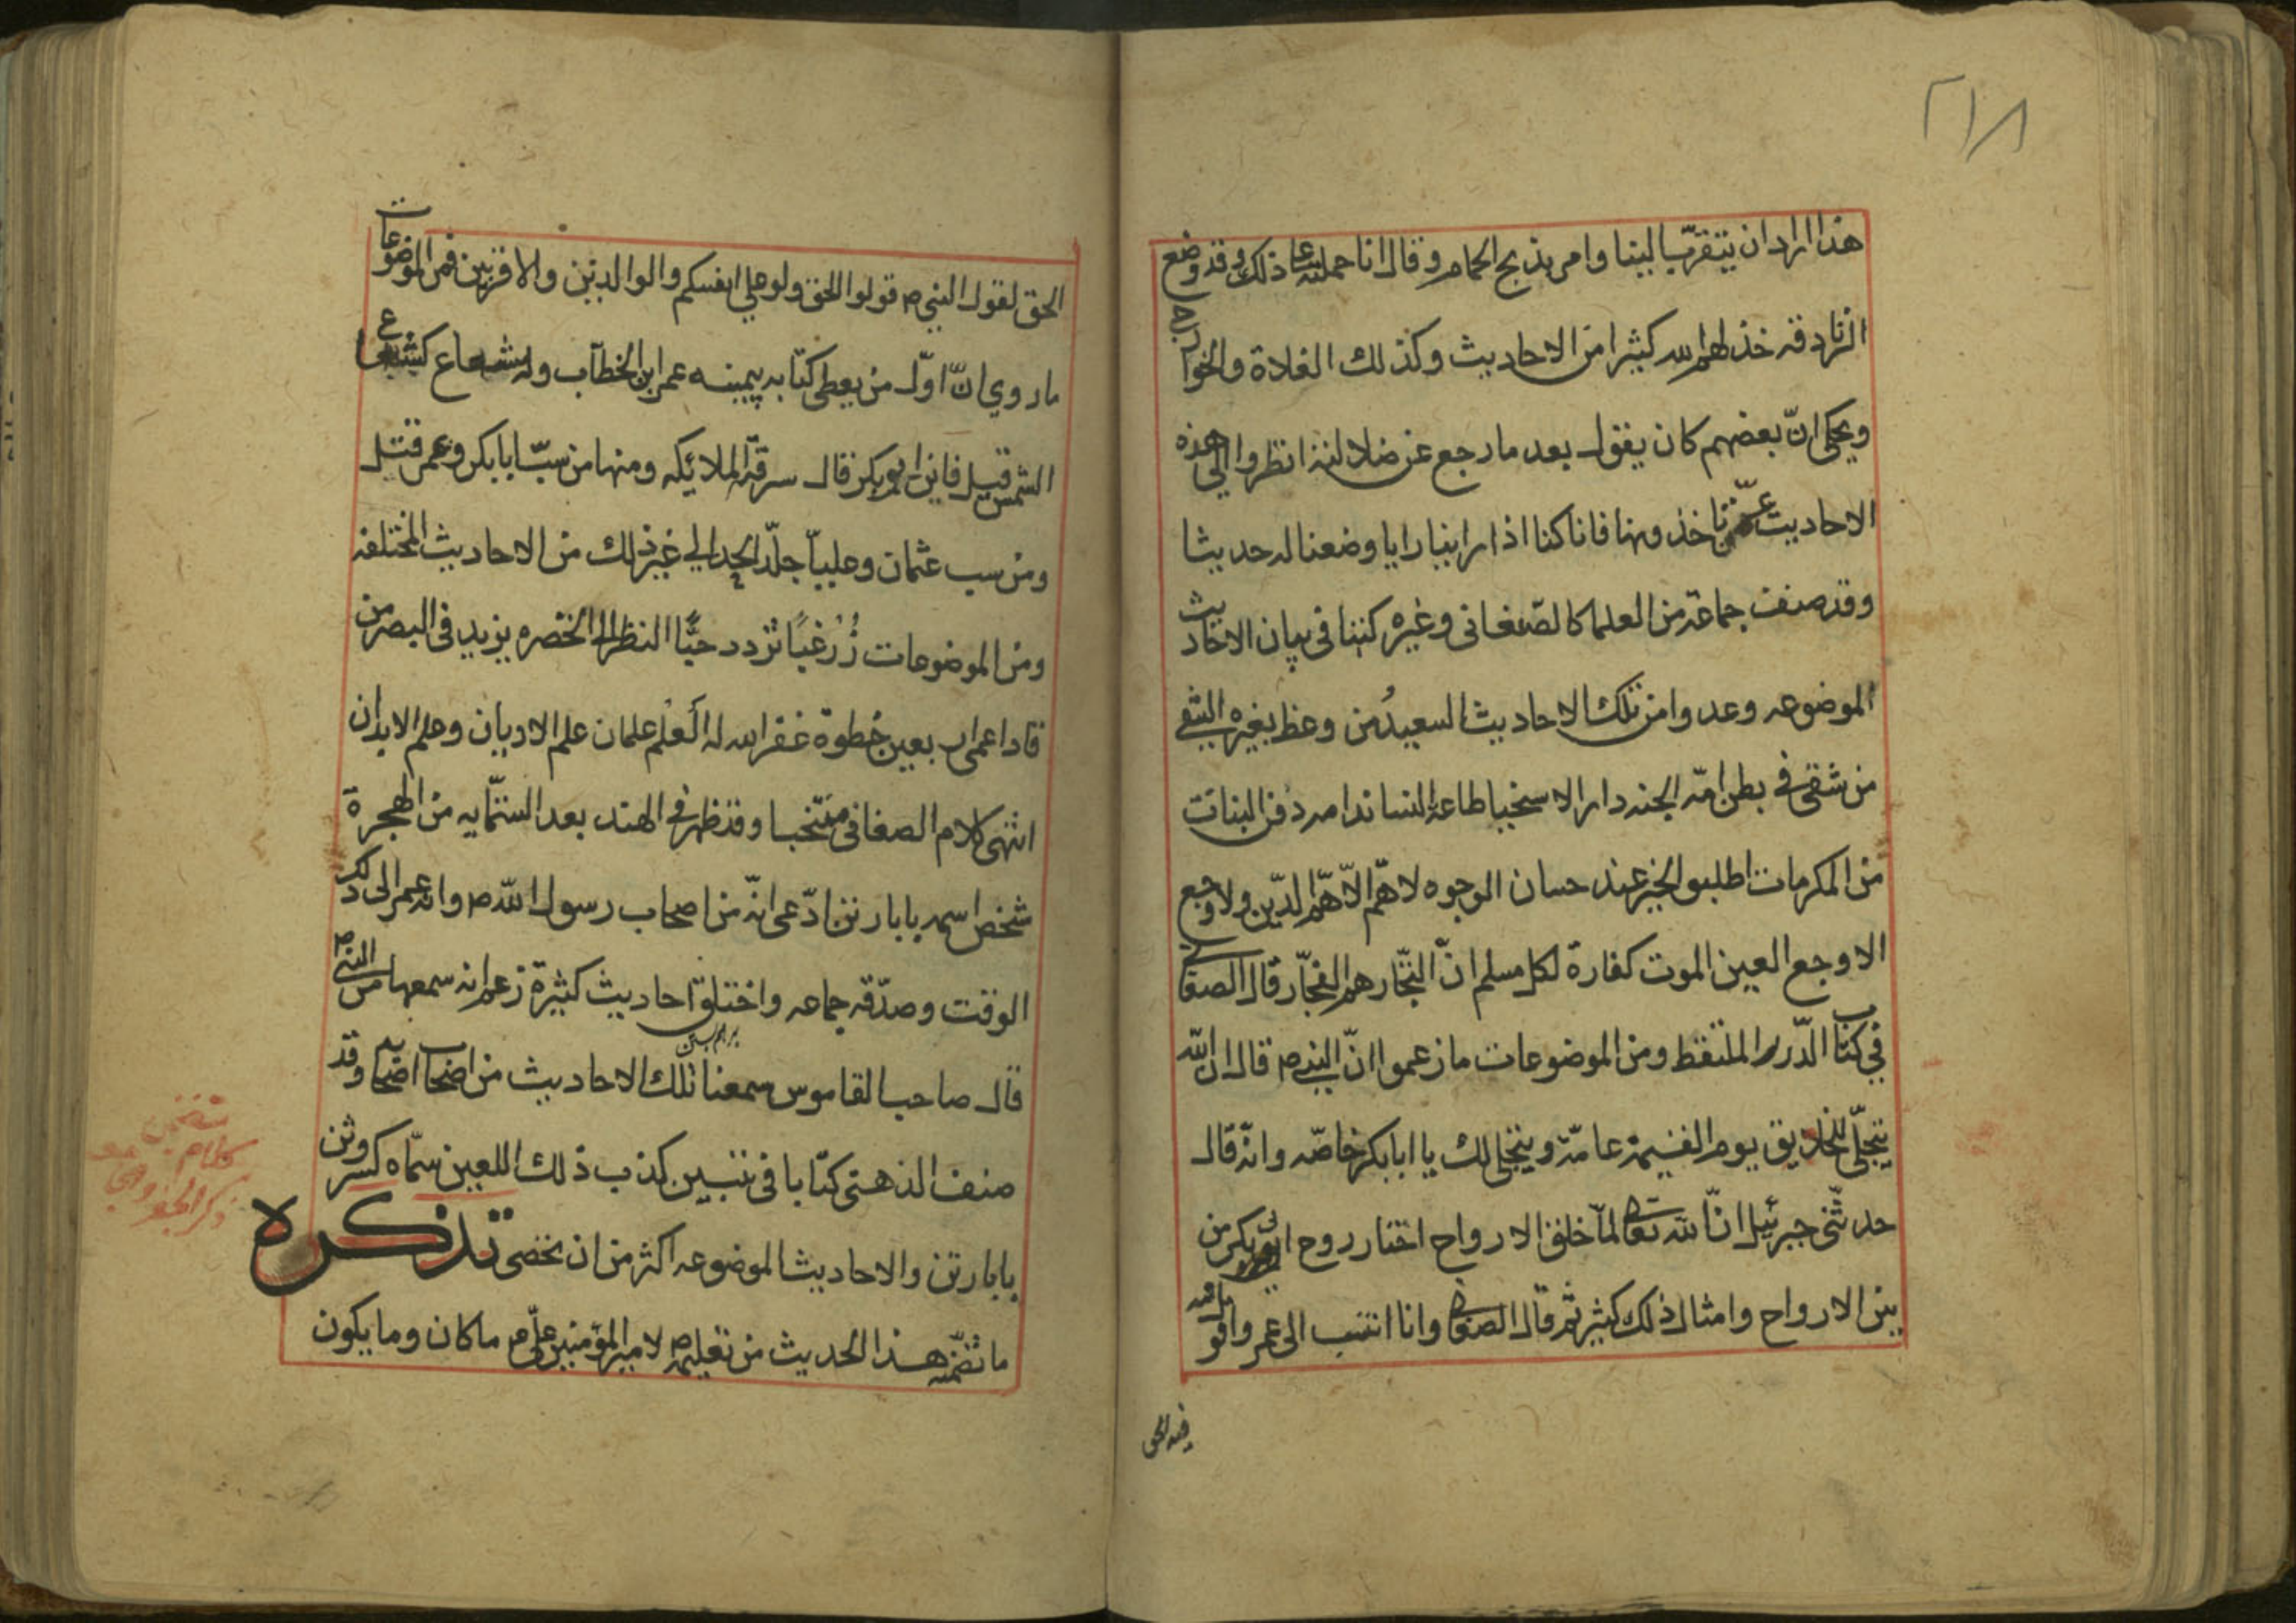 ٢١٨
هذا اراد ان يتقرّب الينا وامر بذبح الحمام وقال انا حملته على ذلك وقد وضع
الزنادقه خذلهم الله كثيرا من الاحاديث وكذلك الغلاة والخوارج
ويحكى انّ بعضهم كان يقول بعد ما رجع عن ضلالته انظروا الى هذه
الاحاديث عمّن تاخذونها فانا كنا اذا راينا رايا وضعنا له حديثا
وقد صنف جماعة من العلما كالصّغانى وغيره كتبا فى بيان الاحاديث
الموضوعه وعدوا من تلك الاحاديث السعيد من وعظ بغيره الشقي
من شقى في بطن امّه الجنه دار الاسخيا طاعة النسا ندامه دفن البنات
من المكرمات اطلبوا الخير عند حسان الوجوه لا همّ الّا همّ الدّين ولا وجع
الا وجع العين الموت كفارة لكل مسلم انّ التجّار هم الفجّار قال الصغانى
في كتاب الدّرر الملتقط ومن الموضوعات ما زعموا انّ النبي ص قال ان الله
يتجلّى للخلايق يوم القيمة عامّة ويتجلى لك يا ابا بكر خاصّه وانّه قال
حدثنى جبرئيل انّ الله تعالى لمّا خلق الارواح اختار روح ابى بكر من
بين الارواح وامثال ذلك كثير ثم قال الصغانى وانا انتسب الى عمر واقول
فيه الحق
الحق لقول النبي ص قولوا الحق ولو على انفسكم والوالدين والاقربين فمن الموضوعات
ما روي انّ اوّل من يعطى كتابه بيمينه عمر ابن الخطاب وله شعاع كشعاع
الشمس قيل فاين ابو بكر قال سرقته الملائكه ومنها من سبّ ابا بكر وعمر قتل
ومن سب عثمان وعليّا جلّد الحد الي غير ذلك من الاحاديث المختلفه
ومن الموضوعات زُرْ غبًّا تزدد حبًّا النظر الى الخضره يزيد فى البصر من
قاد اعمى اربعين خطوة غفر الله له العلم علمان علم الاديان وعلم الابدان
انتهى كلام الصغانى منتخبا وقد ظهر في الهند بعد الستمّايه من الهجرة
شخص اسمه بابا رتن ادّعى انّه من اصحاب رسول الله ص وانه عمر الى ذلك
الوقت وصدّقه جماعه واختلق احاديث كثيرة زعم انه سمعها من النبى ص
قال صاحب القاموس سمعنا تلك الاحاديث من اصحاب اصحابه وقد
صنف الذهبى كتابا فى تبيين كذب ذلك اللعين سمّاه كسر وثن
بابا رتن والاحاديث الموضوعه اكثر من ان تحصى تذكره
ما تضمّنه هذا الحديث من تعليمه ص لامير المؤمنين على ع م ما كان وما يكون